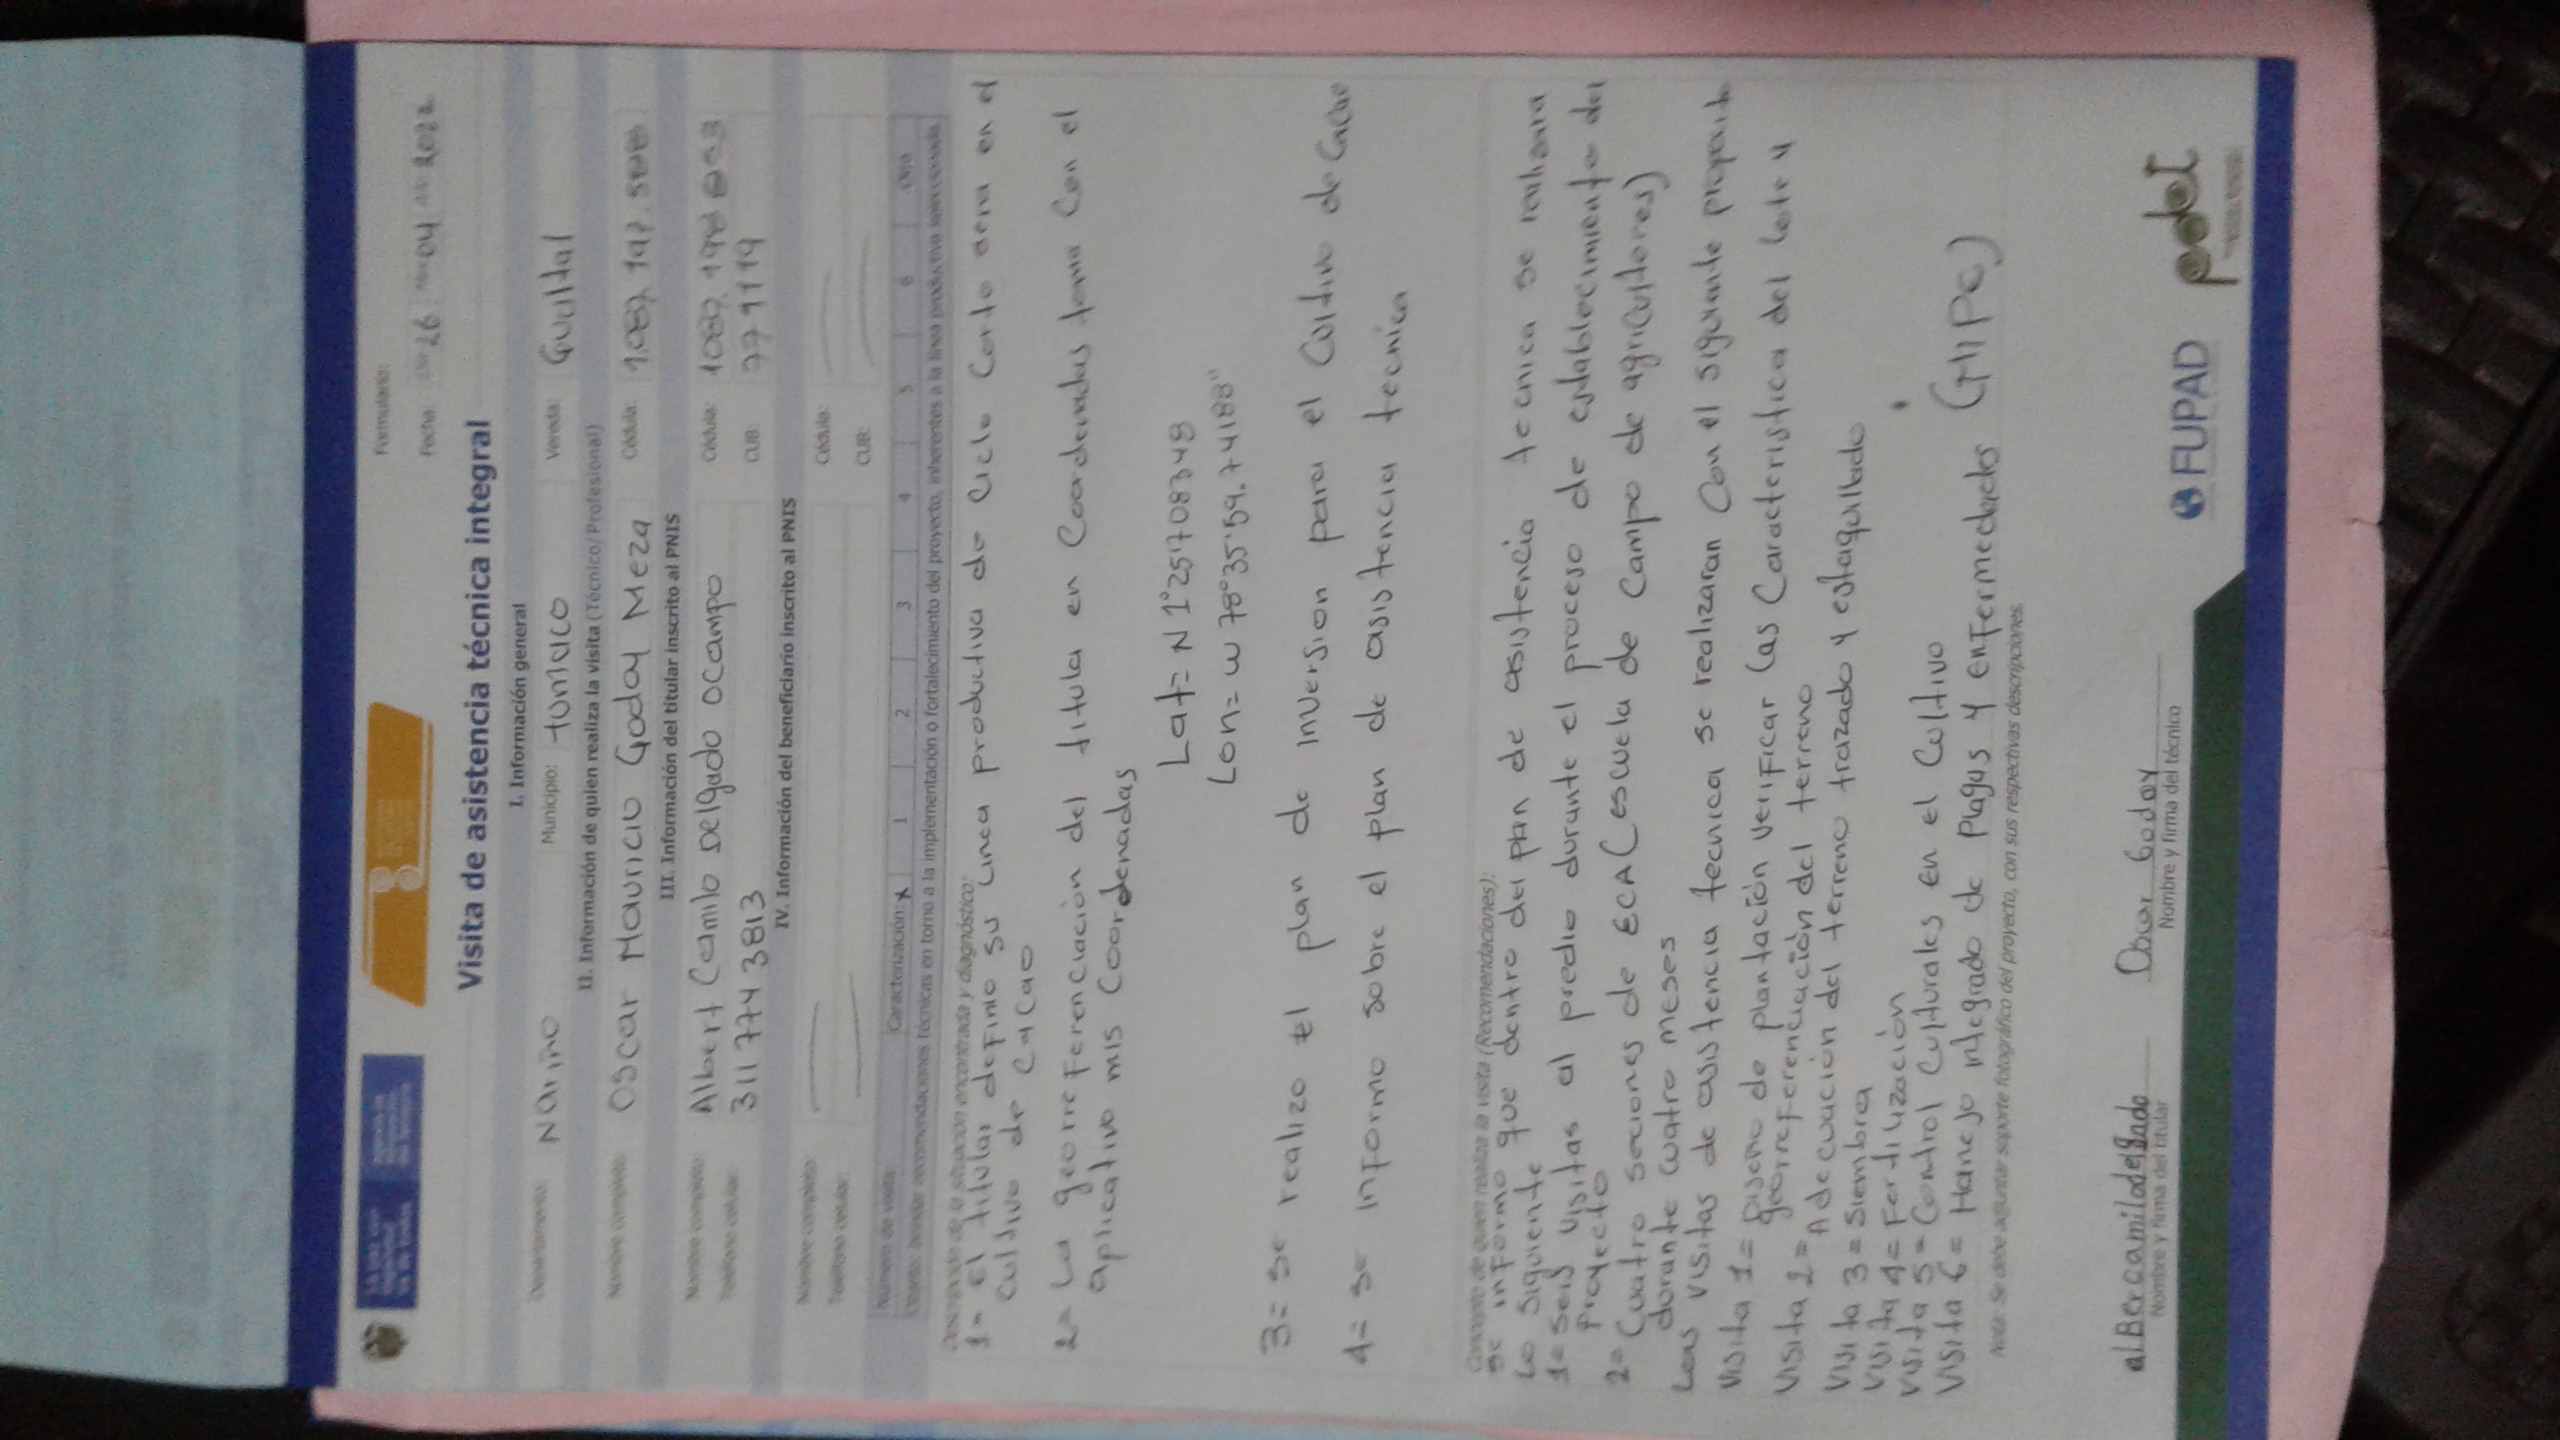 Formulario:
Fecha: 26 04 2022
Visita de asistencia técnica integral
I. Información general
Departamento: Nariño Municipio: tumaco Vereda: Gualtal
II. Información de quien realiza la visita (Técnico/Profesional)
Nombre completo: Oscar Mauricio Goday Meza Cédula:
III. Información del titular inscrito al PNIS
Nombre completo: Albert Camilo Delgado Ocampo Cédula:
Teléfono celular: 311 774 3813 CUB: 771119
IV. Información del beneficiario inscrito al PNIS
Nombre completo: Cédula:
Teléfono celular: CUB:
Número de visita: Caracterización: x 1 2 3 4 5 6 Otra
Objeto: brindar recomendaciones técnicas en torno a la implementación o fortalecimiento del proyecto, inherentes a la línea productiva seleccionada.
Descripción de la situación encontrada y diagnóstico:
1= El titular definio su Linea productiva de Ciclo Corto sera en el
Cultivo de Cacao
2= La georreferenciación del titula en Coordenadas toma Con el
aplicativo mis Coordenadas
Lat= N 1°25'1708348
Lon= W 78°35'59.74188"
3= Se realizo el plan de inversion para el Cultivo de Cacao
4= Se informo sobre el plan de asistencia tecnica
Concepto de quien realiza la visita (Recomendaciones):
Se informo que dentro del plan de asistencia tecnica se realizara
Lo siguiente
1= seis visitas al predio durante el proceso de establecimiento del
proyecto
2= Cuatro secciones de ECA (escuela de Campo de agricultores)
durante cuatro meses
Las visitas de asistencia tecnica se realizaran Con el siguiente proposito
Visita 1= Diseño de plantación verificar las Carateristica del lote y
georreferenciación del terreno
Visita 2= Adecuación del terreno trazado y estaquillado
Visita 3= Siembra
Visita 4= Fertilización
Visita 5= Control Culturales en el Cultivo
Visita 6= Manejo integrado de Plagas y enfermedades (MIPE)
Nota: Se debe adjuntar soporte fotográfico del proyecto, con sus respectivas descripciones.
alBercamilodelgado Oscar Godoy
Nombre y firma del titular Nombre y firma del técnico
FUPAD pdet